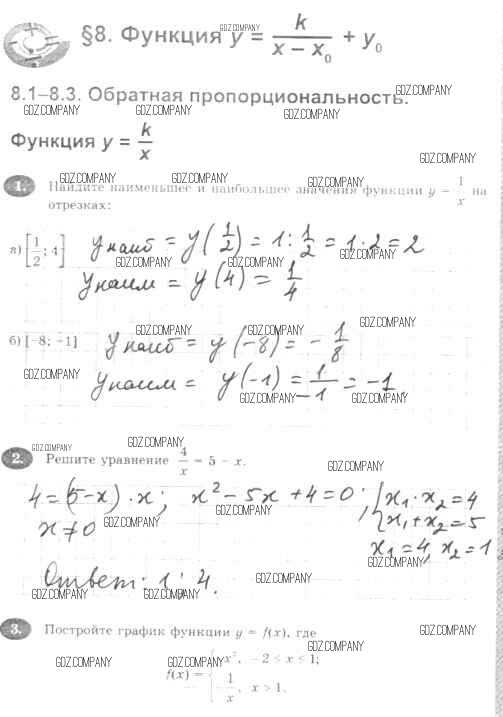 §8. Функция y = k/(x − x₀) + y₀
8.1–8.3. Обратная пропорциональность.
Функция y = k/x
1. Найдите наименьшее и наибольшее значения функции y = 1/x на
отрезках:
а) [1/2; 4] yнаиб = y(1/2) = 1 : 1/2 = 1 · 2 = 2
yнаим = y(4) = 1/4
б) [-8; -1] yнаиб = y(-8) = -1/8
yнаим = y(-1) = 1/-1 = -1,
2. Решите уравнение 4/x = 5 − x.
4 = (5-x)·x; x² - 5x + 4 = 0; {x₁·x₂ = 4
x ≠ 0 {x₁+x₂ = 5
x₁ = 4, x₂ = 1
Ответ: 1; 4.
3. Постройте график функции y = f(x), где
f(x) = { x², −2 ≤ x ≤ 1;
1/x, x > 1.
GDZ.COMPANY